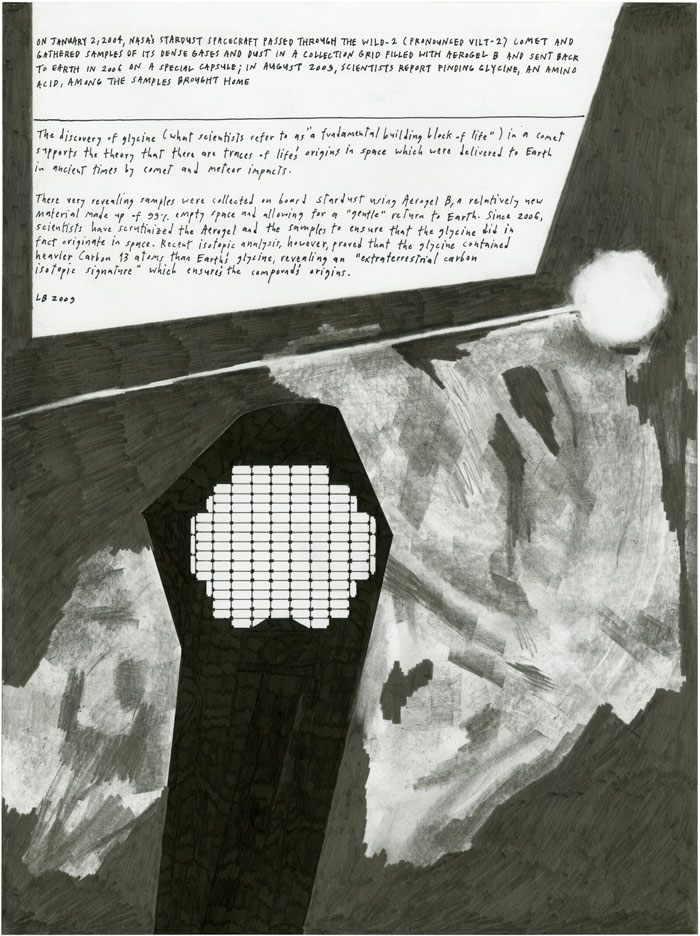 ON JANUARY 2, 2004, NASA'S STARDUST SPACECRAFT PASSED THROUGH THE WILD-2 (PRONOUNCED VILT-2) COMET AND
GATHERED SAMPLES OF ITS DENSE GASES AND DUST IN A COLLECTION GRID FILLED WITH AEROGEL B AND SENT BACK
TO EARTH IN 2006 ON A SPECIAL CAPSULE; IN AUGUST 2009, SCIENTISTS REPORT FINDING GLYCINE, AN AMINO
ACID, AMONG THE SAMPLES BROUGHT HOME
The discovery of glycine (what scientists refer to as "a fundamental building block of life") in a comet
supports the theory that there are traces of life's origins in space which were delivered to Earth
in ancient times by comet and meteor impacts.
These very revealing samples were collected on board stardust using Aerogel B, a relatively new
material made up of 99% empty space and allowing for a "gentle" return to Earth. Since 2006,
scientists have scrutinized the Aerogel and the samples to ensure that the glycine did in
fact originate in space. Recent isotopic analysis, however, proved that the glycine contained
heavier Carbon 13 atoms than Earth's glycine, revealing an "extraterrestrial carbon
isotopic signature" which ensures the compound's origins.
LB 2009